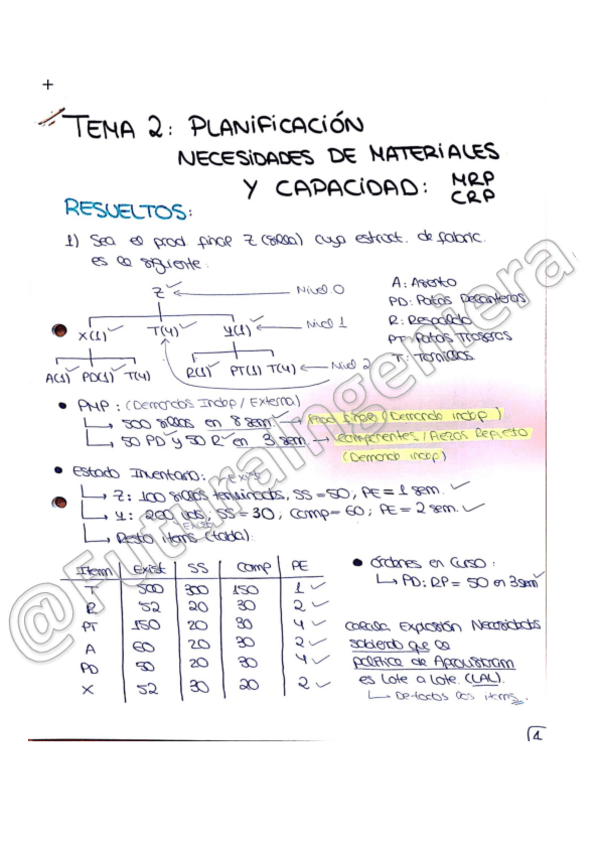 +
TEMA 2: PLANIFICACIÓN
NECESIDADES DE MATERIALES
Y CAPACIDAD: MRP
CRP
RESUELTOS:
1) Sea el prod final Z (silla) cuya estruct. de fabric.
es la siguiente:
Z Nivel 0
X(1) T(4) Y(1) Nivel 1
A(1) PD(1) T(4) R(1) PT(1) T(4) Nivel 2
A: Asiento
PD: Patas Delanteras
R: Respaldo
PT: Patas Traseras
T: Tornillos
• PMP: (Demandas Indep / Externa)
500 sillas en 8 sem. → Prod final (Demanda indep)
50 PD y 50 R en 3 sem. → Componentes / Piezas Repuesto
(Demanda indep)
• Estado Inventario: exist
Z: 100 sillas terminadas, SS = 50, PE = 1 sem.
Y: 200 uds, SS = 30; Comp = 60; PE = 2 sem.
Exist
Resto items (tabla):
Item Exist SS Comp PE
T 500 300 150 1
R 52 20 30 2
PT 150 20 30 4
A 60 20 30 2
PD 50 20 30 4
X 52 30 20 2
• Órdenes en Curso:
PD: RP = 50 en 3 sem
Calcula Explosión Necesidades
sabiendo que la
política de Aprovisionam
es lote a lote. (LAL).
De todos los items.
1
@FuturaIngeniera